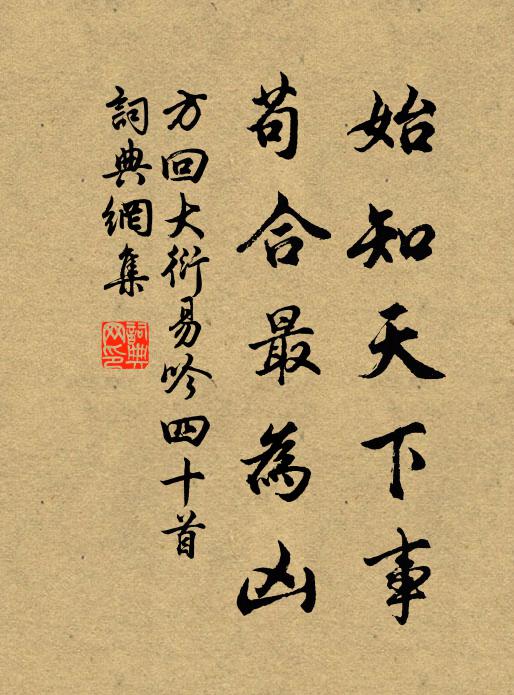 始知天下事
苟合最為凶
方回大衍易吟四十首
詞典網集
詞典网印